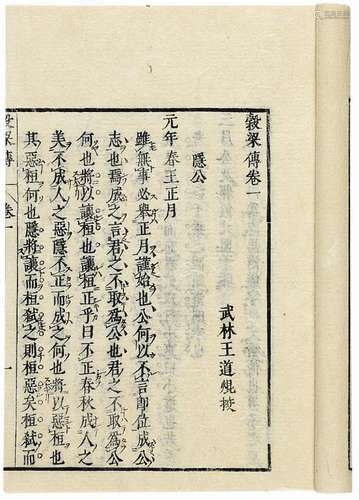 穀梁傳卷一
武林王道焜挍
隱公
元年春王正月
雖無事必舉正月謹始也公何以不言即位成公
志也焉成之言君之不取為公也君之不取為公
何也將以讓桓也讓桓正乎曰不正春秋成人之
美不成人之惡隱不正而成之何也將以惡桓也
其惡桓何也隱將讓而桓弒之則桓惡矣桓弒而
穀梁傳 卷一 一